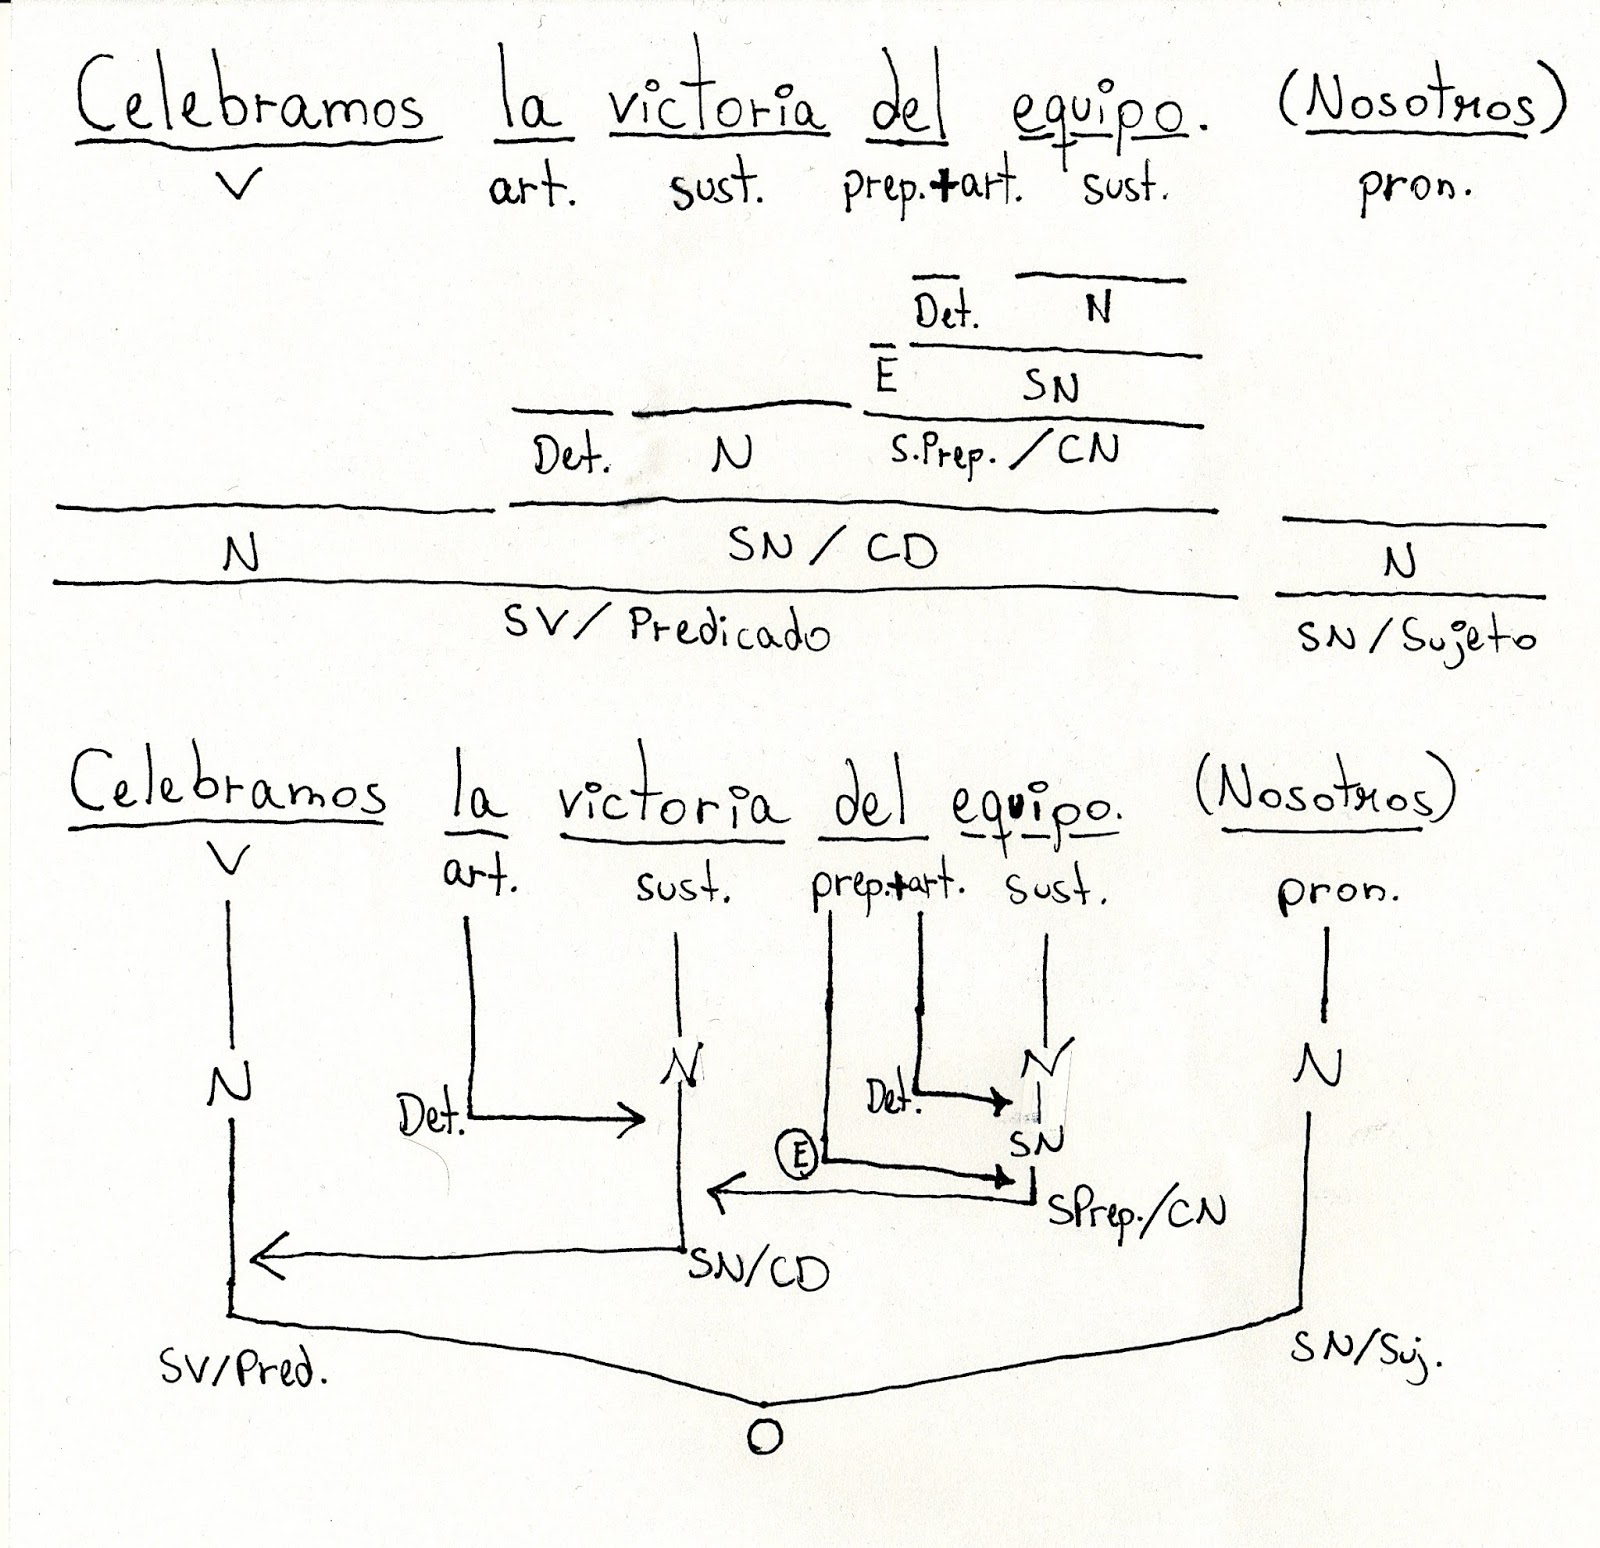 Celebramos la victoria del equipo. (Nosotros)
V art. sust. prep.+art. sust. pron.
Det. N
E SN
Det. N S.Prep./CN
N SN/CD N
SV/Predicado SN/Sujeto
Celebramos la victoria del equipo. (Nosotros)
V art. sust. prep.+art. sust. pron.
N N N N
Det. Det.
SN
E
SPrep./CN
SN/CD
SV/Pred. SN/Suj.
O